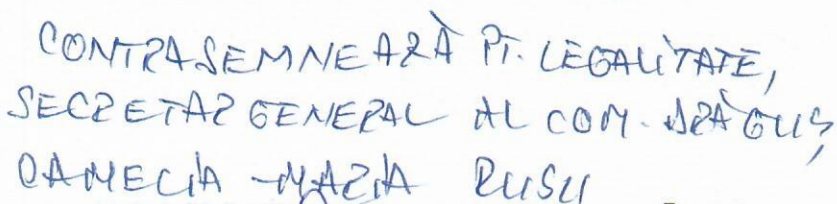 CONTRASEMNEAZĂ PT. LEGALITATE,
SECRETAR GENERAL AL COM. DRĂGUȘ
CAMELIA-MARIA RUSU